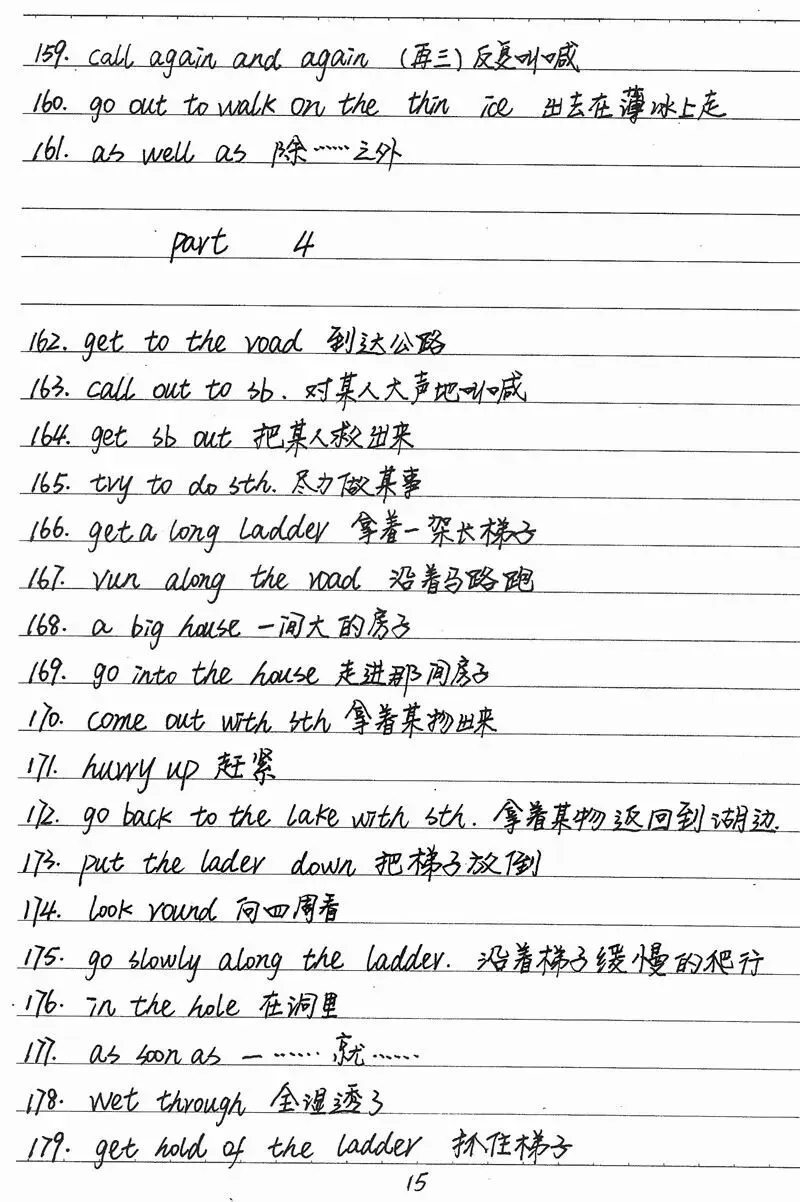 159. call again and again (再三)反复叫喊
160. go out to walk on the thin ice 出去在薄冰上走
161. as well as 除……之外
part 4
162. get to the road 到达公路
163. call out to sb. 对某人大声地叫喊
164. get sb out 把某人救出来
165. try to do sth. 尽力做某事
166. get a long ladder 拿着一架长梯子
167. run along the road 沿着马路跑
168. a big house 一间大的房子
169. go into the house 走进那间房子
170. come out with sth 拿着某物出来
171. hurry up 赶紧
172. go back to the lake with sth. 拿着某物返回到湖边.
173. put the lader down 把梯子放倒
174. look round 向四周看
175. go slowly along the ladder. 沿着梯子缓慢的爬行
176. in the hole 在洞里
177. as soon as 一……就……
178. wet through 全湿透了
179. get hold of the ladder 抓住梯子
15